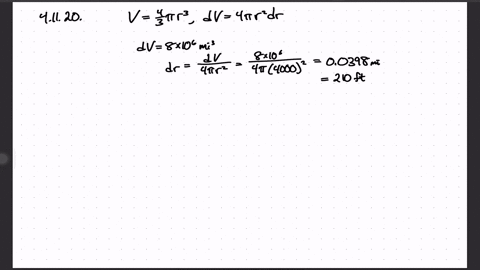 4.11.20. V = 4/3 πr³, dV = 4πr²dr
dV = 8×10⁶ mi³
dr = dV/4πr² = 8×10⁶/4π(4000)² = 0.0398 mi
= 210 ft